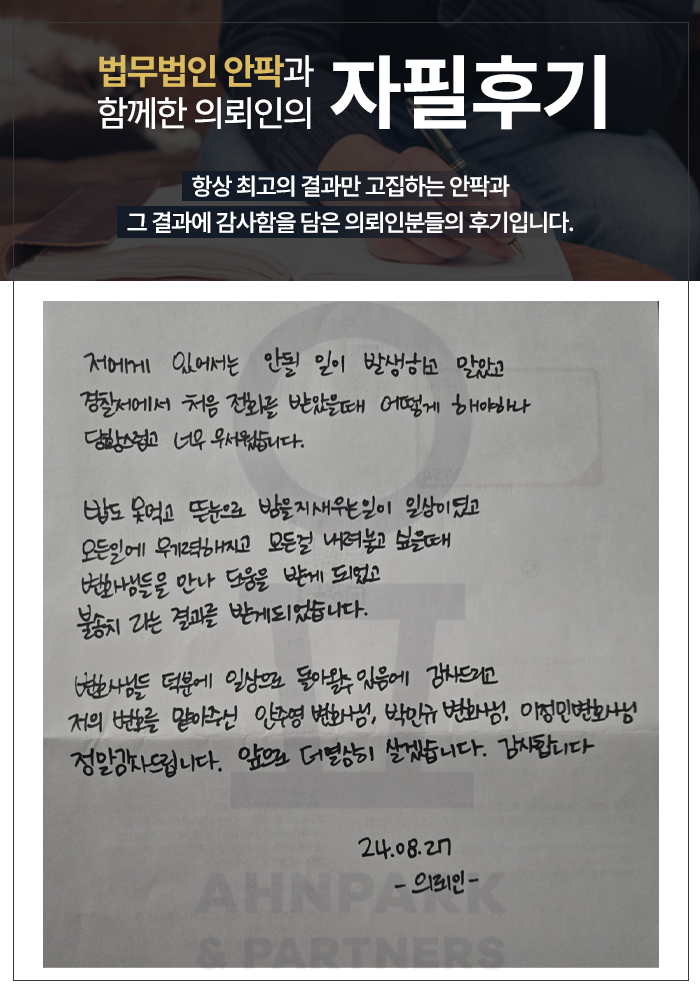 법무법인 안팍과
함께한 의뢰인의
자필후기
항상 최고의 결과만 고집하는 안팍과
그 결과에 감사함을 담은 의뢰인분들의 후기입니다.
저에게 있어서는 안될 일이 발생하고 말았고
경찰서에서 처음 전화를 받았을때 어떻게 해야하나
당황스럽고 너무 무서웠습니다.
밥도 못먹고 뜬눈으로 밤을지새우는일이 일상이었고
모든일에 무기력해지고 모든걸 내려놓고 싶을때
변호사님들을 만나 도움을 받게 되었고
불송치 라는 결과를 받게되었습니다.
변호사님들 덕분에 일상으로 돌아올수있음에 감사드리고
저의 변호를 맡아주신 안주영 변호사님, 박민규 변호사님, 이정민변호사님
정말감사드립니다. 앞으로 더열심히 살겠습니다. 감사합니다
24.08.27
- 의뢰인 -
AHNPARK
& PARTNERS